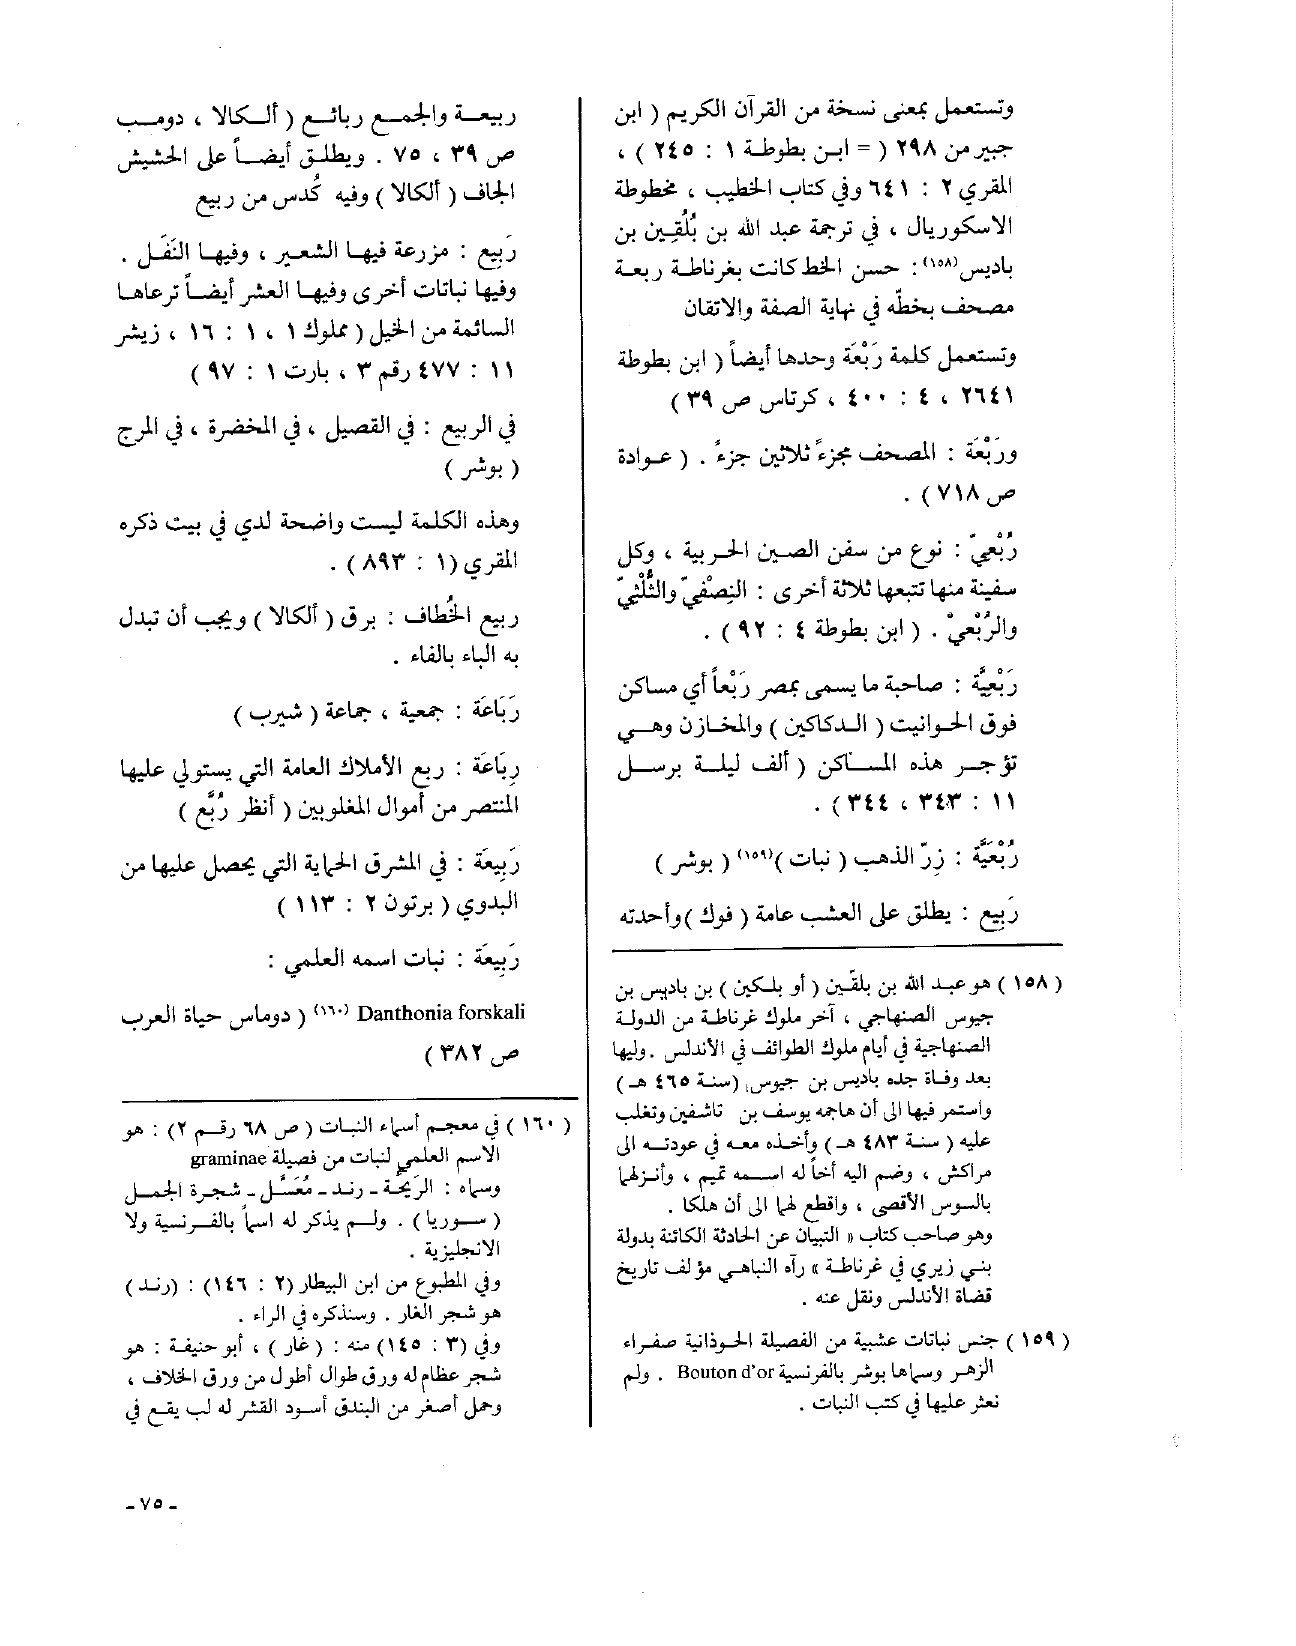 وتستعمل بمعنى نسخة من القرآن الكريم ( ابن
جبير من ٢٩٨ ( = ابن بطوطة ١ : ٢٤٥ ) ،
المقري ٢ : ٦٤١ وفي كتاب الخطيب ، مخطوطة
الاسكوريال ، في ترجمة عبد الله بن بُلُقِين بن
باديس(١٥٨): حسن الخط كانت بغرناطة ربعة
مصحف بخطّه في نهاية الصفة والاتقان
وتستعمل كلمة رَبْعَة وحدها أيضاً ( ابن بطوطة
٢٦٤١ ، ٤ : ٤٠٠ ، كرتاس ص ٣٩ )
ورَبْعَة : المصحف مجزءً ثلاثين جزءً . ( عوادة
ص ٧١٨ ) .
رُبْعيّ : نوع من سفن الصين الحربية ، وكل
سفينة منها تتبعها ثلاثة أخرى : النِصْفيّ والثُلْثيّ
والرُبْعيّ . ( ابن بطوطة ٤ : ٩٢ ) .
رَبْعيَّة : صاحبة ما يسمى بمصر رَبْعاً أي مساكن
فوق الحوانيت ( الدكاكين ) والمخازن وهي
تؤجر هذه المساكن ( ألف ليلة برسل
١١ : ٣٤٣ ، ٣٤٤ ) .
رُبْعيَّة : زرّ الذهب ( نبات )(١٥٩) ( بوشر )
رَبيع : يطلق على العشب عامة ( فوك ) وأحدته
( ١٥٨ ) هو عبد الله بن بلقّين ( أو بلكين ) بن باديس بن
حيوس الصنهاجي ، آخر ملوك غرناطة من الدولة
الصنهاجية في أيام ملوك الطوائف في الأندلس . وليها
بعد وفاة جده باديس بن حيوس (سنة ٤٦٥ هـ )
واستمر فيها الى أن هاجمه يوسف بن تاشفين وتغلب
عليه ( سنة ٤٨٣ هـ ) وأخذه معه في عودته الى
مراكش ، وضم اليه أخاً له اسمه تميم ، وأنزلها
بالسوس الأقصى ، واقطع لهما الى أن هلكا .
وهو صاحب كتاب « التبيان عن الحادثة الكائنة بدولة
بني زيري في غرناطة » رآه النباهي مؤلف تاريخ
قضاة الأندلس ونقل عنه .
( ١٥٩ ) جنس نباتات عشبية من الفصيلة الحوذانية صفراء
الزهر وسماها بوشر بالفرنسية Bouton d'or . ولم
نعثر عليها في كتب النبات .
ربيعة والجمع ربائع ( ألكالا ، دومب
ص ٣٩ ، ٧٥ . ويطلق أيضاً على الحشيش
الجاف ( ألكالا ) وفيه كُدس من ربيع
رَبيع : مزرعة فيها الشعير ، وفيها النَفَل .
وفيها نباتات أخرى وفيها العشر أيضاً ترعاها
السائمة من الخيل ( مملوك ١ ، ١ : ١٦ ، زيشر
١١ : ٤٧٧ رقم ٣ ، بارت ١ : ٩٧ )
في الربيع : في القصيل ، في المخضرة ، في المرج
( بوشر )
وهذه الكلمة ليست واضحة لدي في بيت ذكره
المقري (١ : ٨٩٣ ) .
ربيع الخُطاف : برق ( ألكالا ) ويجب أن تبدل
به الباء بالفاء .
رَبَاعَة : جمعية ، جماعة ( شيرب )
رِبَاعَة : ربع الأملاك العامة التي يستولي عليها
المنتصر من أموال المغلوبين ( أنظر رُبَّع )
رَبِيعَة : في المشرق الحماية التي يحصل عليها من
البدوي ( برتون ٢ : ١١٣ )
رَبِيعَة : نبات اسمه العلمي :
Danthonia forskali (١٦٠) ( دوماس حياة العرب
ص ٣٨٢ )
( ١٦٠ ) في معجم أسماء النبات ( ص ٦٨ رقم ٢ ) : هو
الاسم العلمي لنبات من فصيلة graminae
وسماه : الرَيحَة - رند - مُعَسَّل - شجرة الجمل
( سوريا ) . ولم يذكر له اسماً بالفرنسية ولا
الانجليزية .
وفي المطبوع من ابن البيطار (٢ : ١٤٦) : (رند )
هو شجر الغار . وسنذكره في الراء .
وفي (٣ : ١٤٥) منه : ( غار ) ، أبو حنيفة : هو
شجر عظام له ورق طوال أطول من ورق الخلاف ،
وحمل أصغر من البندق أسود القشر له لب يقع في
- ٧٥ -